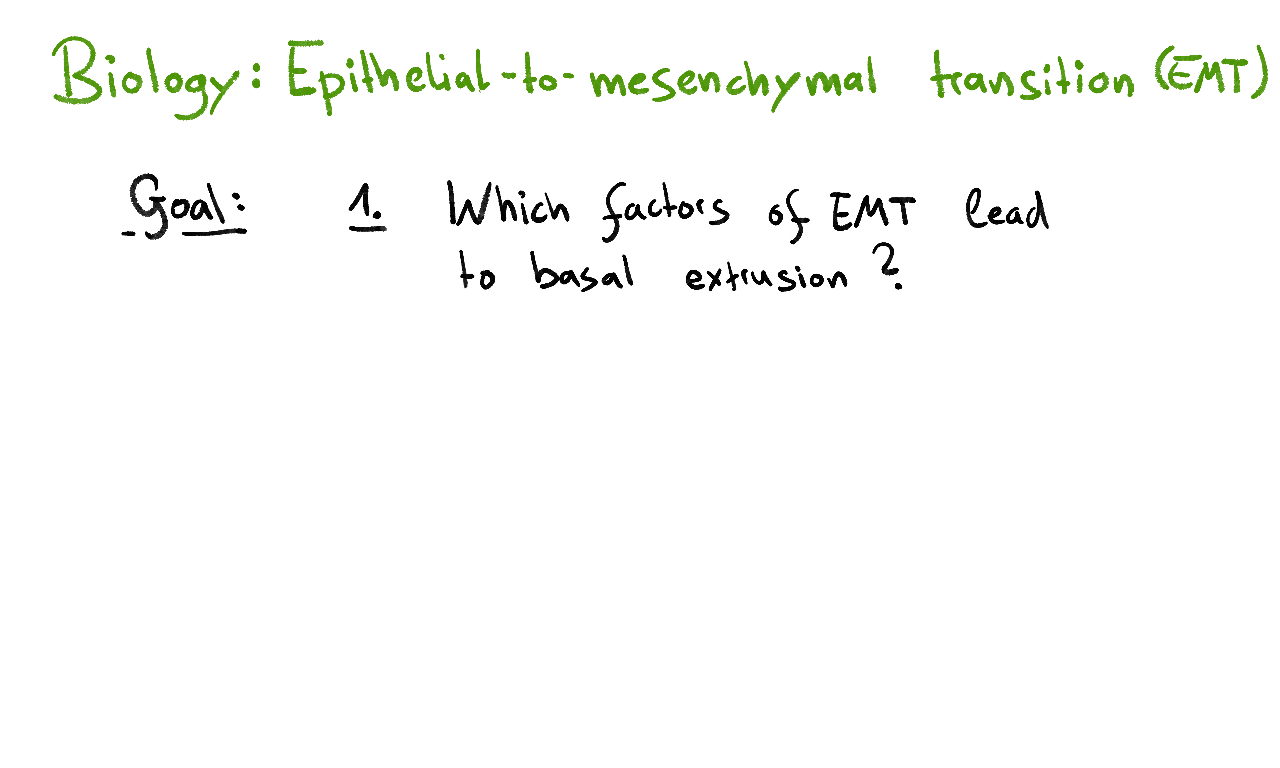 Biology: Epithelial-to-mesenchymal transition (EMT)
Goal: 1. Which factors of EMT lead
to basal extrusion?